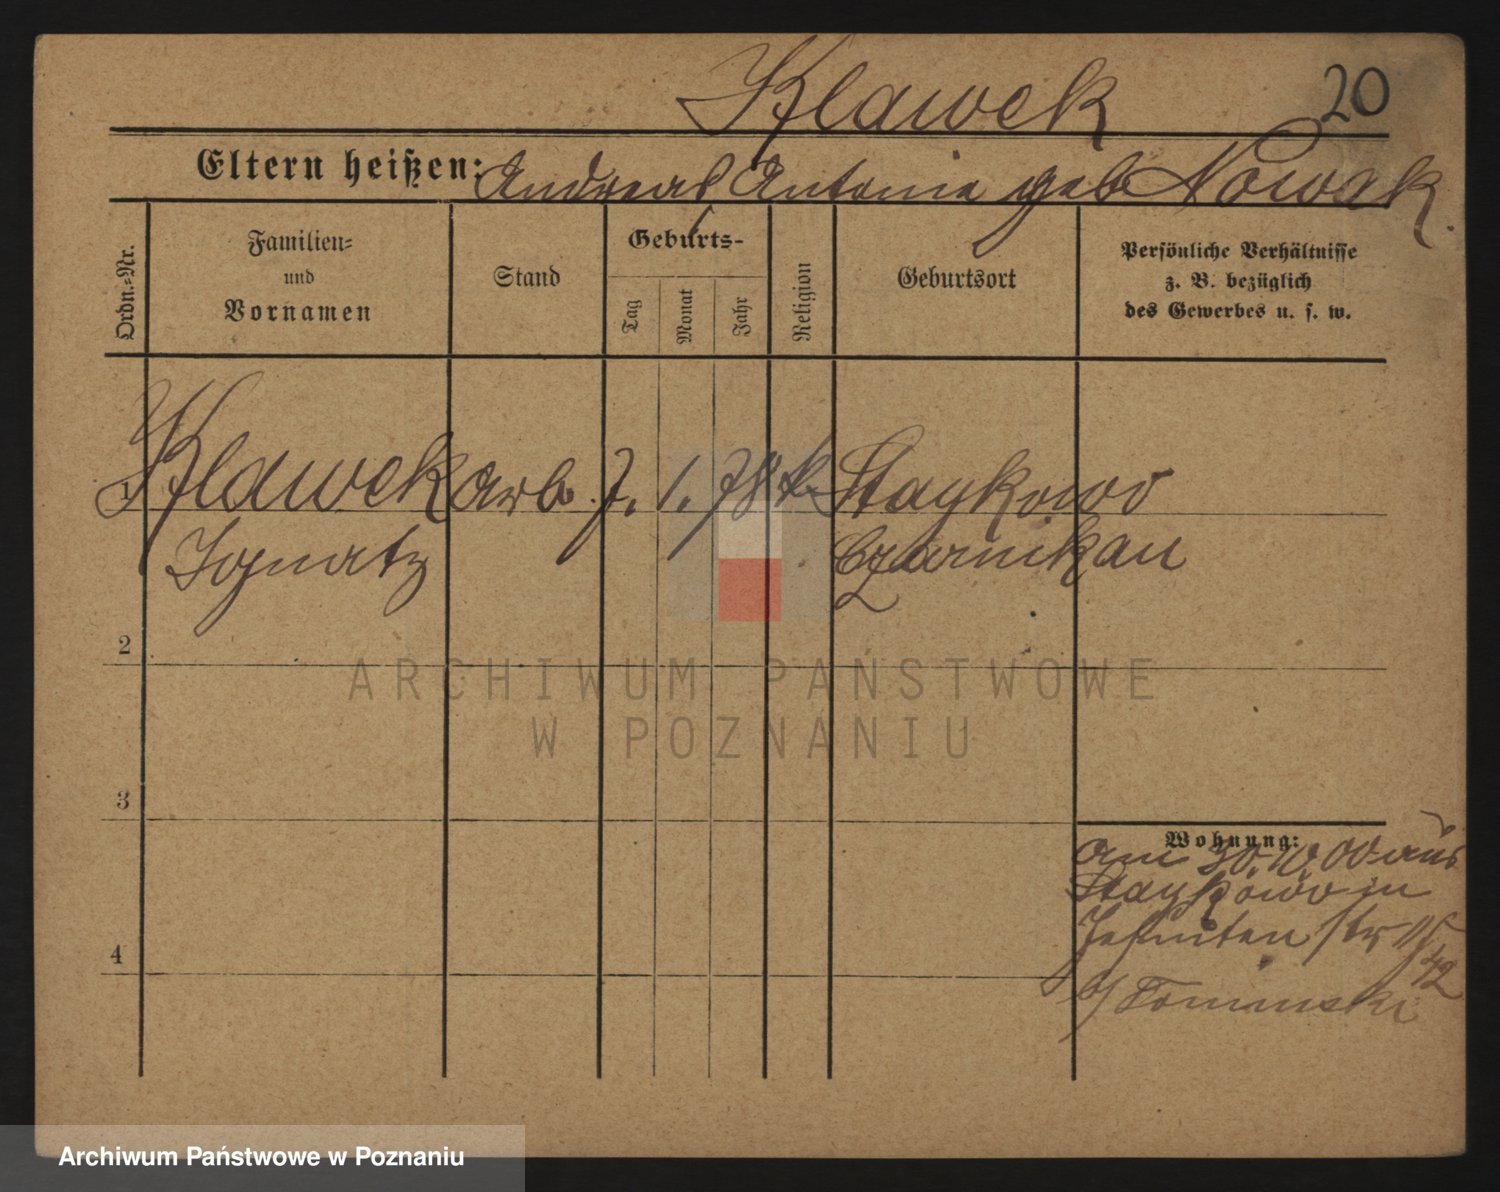 Klawek
20
Eltern heißen: Andreas, Antonie geb Nowak.
Ordn.-Nr.
Familien-
und
Vornamen
Stand
Geburts-
Tag
Monat
Jahr
Religion
Geburtsort
Persönliche Verhältnisse
z. B. bezüglich
des Gewerbes u. s. w.
1 Klawek Arb. 7. 1. 78 k Staykowo
Ignatz Czarnikau
2
ARCHIWUM PAŃSTWOWE
W POZNANIU
3
Wohnung:
am 30.10.00 aus
Staykowo in
Jesuiten str 11/
42
b/ Tominski
4
Archiwum Państwowe w Poznaniu